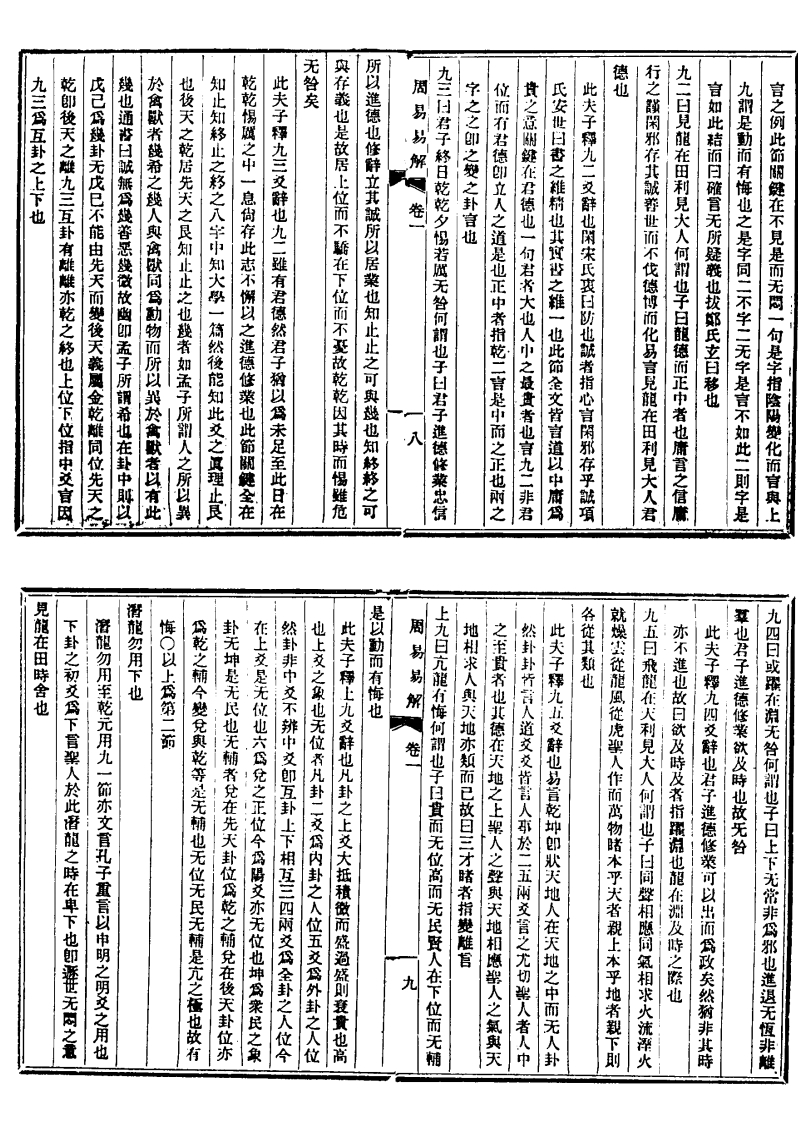 言之例此節關鍵在不見是而无悶一句是字指陰陽變化而言與上
九謂是動而有悔也之是字同二不字二无字是言不如此二則字是
言如此結而曰確言无所疑義也拔鄭氏玄曰移也
九二曰見龍在田利見大人何謂也子曰龍德而正中者也庸言之信庸
行之謹閑邪存其誠善世而不伐德博而化易言見龍在田利見大人君
德也
此夫子釋九二爻辭也閑宋氏衷曰防也誠者指心言閑邪存乎誠項
氏安世曰書之維精也其實書之維一也此節全文皆言道以中庸爲
貴之意關鍵在君德也一句君者大也人中之最貴者也言九二非君
位而有君德卽立人之道是也正中者指乾二言是中而之正也兩之
字之之卽之變之卦言也
九三曰君子終日乾乾夕惕若厲无咎何謂也子曰君子進德修業忠信
周易易解
卷一
一八
所以進德也修辭立其誠所以居業也知止止之可與幾也知終終之可
與存義也是故居上位而不驕在下位而不憂故乾乾因其時而惕雖危
无咎矣
此夫子釋九三爻辭也九二雖有君德然君子猶以爲未足至此日在
乾乾惕厲之中一息尙存此志不懈以之進德修業也此節關鍵全在
知止知終止之終之八字中知大學一篇然後能知此爻之眞理止艮
也後天之乾居先天之艮知止止之也幾者如孟子所謂人之所以異
於禽獸者幾希之幾人與禽獸同爲動物而所以異於禽獸者以有此
幾也通書曰誠無爲幾善惡幾微故幽卽孟子所謂希也在卦中則以
戊己爲幾卦无戊己不能由先天而變後天義屬金乾離同位先天之
乾卽後天之離九三互卦有離離亦乾之終也上位下位指中爻言因
九三爲互卦之上下也
九四曰或躍在淵无咎何謂也子曰上下无常非爲邪也進退无恆非離
羣也君子進德修業欲及時也故无咎
此夫子釋九四爻辭也君子進德修業可以出而爲政矣然猶非其時
亦不進也故曰欲及時及者指躍淵也龍在淵及時之際也
九五曰飛龍在天利見大人何謂也子曰同聲相應同氣相求水流溼火
就燥雲從龍風從虎聖人作而萬物睹本乎天者親上本乎地者親下則
各從其類也
此夫子釋九五爻辭也易言乾坤卽狀天地人在天地之中而无人卦
然卦卦皆言人道爻爻皆言人事於二五兩爻言之尤切聖人者人中
之至貴者也其德在天地之上聖人之聲與天地相應聖人之氣與天
地相求人與天地亦類而已故曰三才睹者指變離言
上九曰亢龍有悔何謂也子曰貴而无位高而无民賢人在下位而无輔
周易易解
卷一
九
是以動而有悔也
此夫子釋上九爻辭也凡卦之上爻大抵積微而盛過盛則衰貴也高
也上爻之象也无位者凡卦二爻爲內卦之人位五爻爲外卦之人位
然卦非中爻不辨中爻卽互卦上下相互三四兩爻爲全卦之人位今
在上爻是无位也六爲兌之正位今爲陽爻亦无位也坤爲衆民之象
卦无坤是无民也无輔者兌在先天卦位爲乾之輔兌在後天卦位亦
爲乾之輔今變兌與乾等是无輔也无位无民无輔是亢之極也故有
悔○以上爲第二節
潛龍勿用下也
潛龍勿用至乾元用九一節亦文言孔子重言以申明之明爻之用也
下卦之初爻爲下言聖人於此潛龍之時在卑下也卽遯世无悶之意
見龍在田時舍也